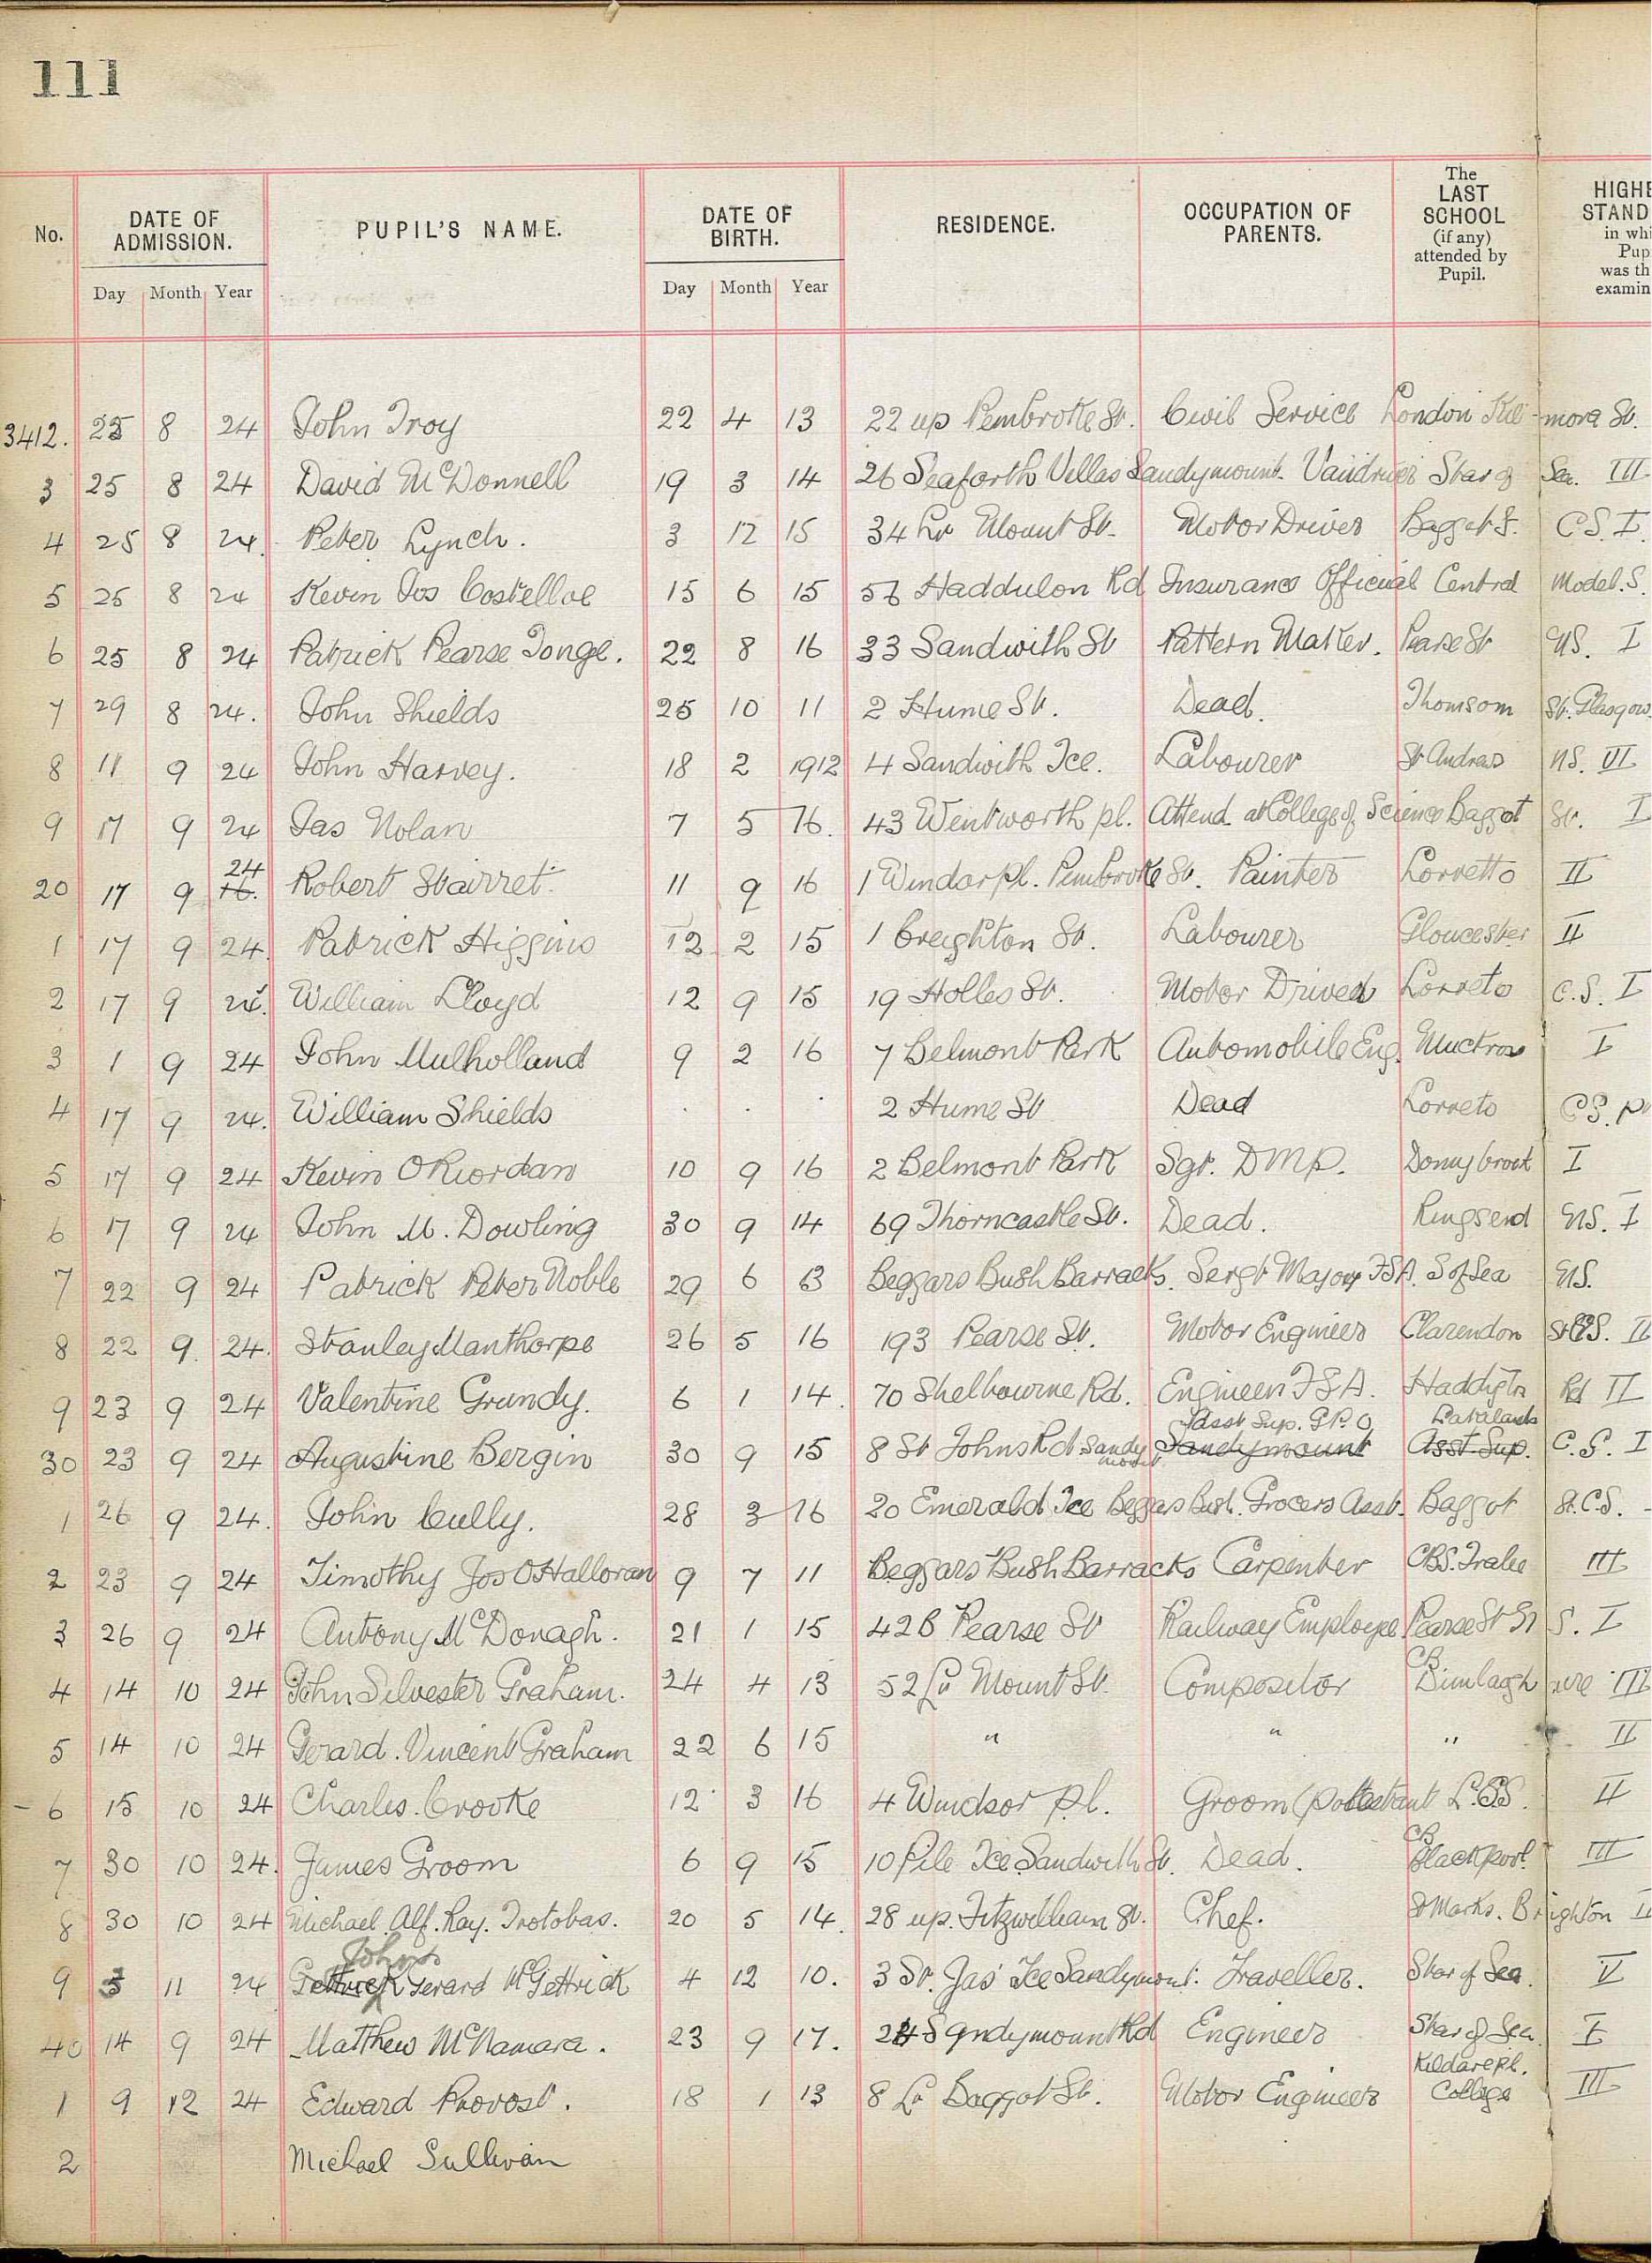 111
No. DATE OF ADMISSION. PUPIL'S NAME. DATE OF BIRTH. RESIDENCE. OCCUPATION OF PARENTS. The LAST SCHOOL (if any) attended by Pupil. HIGHE STAND in whi Pup was th examin
Day Month Year Day Month Year
3412. 25 8 24 John Troy 22 4 13 22 up Pembroke St. Civil Service London Kil- more St.
3 25 8 24 David McDonnell 19 3 14 26 Seaforth Villas Sandymount. Vandriver Star of Sea. III
4 25 8 24. Peter Lynch. 3 12 15 34 Lr Mount St. Motor Driver Baggot S. C.S. I.
5 25 8 24 Kevin Jos Costelloe 15 6 15 Haddulon Rd Insurance Official Central Model. S.
6 25 8 24 Patrick Pearse Tonge. 22 8 16 33 Sandwith St Pattern Maker. Pearse St NS. I
7 29 8 24. John Shields 25 10 11 2 Hume St. Dead. Thomsom St. Glasgow
8 11 9 24 John Harvey. 18 2 1912 4 Sandwith Tce. Labourer St Andrews NS. VI
9 17 9 24 Jas Nolan 7 5 16. 43 Wentworth pl. Attend. at College of Science Baggot St. I
20 17 9 16. 24 Robert Stairret. 11 9 16 1 Windsor pl. Pembroke St. Painter Lorretto II
1 17 9 24. Patrick Higgins 12 2 15 1 Creighton St. Labourer Gloucester II
2 17 9 24. William Lloyd 12 9 15 19 Holles St. Motor Driver Lorreto C.S. I
3 1 9 24 John Mulholland 9 2 16 7 Belmont Park Automobile Eng. Muckross I
4 17 9 24. William Shields . . . 2 Hume St Dead Lorreto C.S.
5 17 9 24 Kevin O Riordan 10 9 16 2 Belmont Park Sgt. D M P. Donnybrook I
6 17 9 24 John M. Dowling 30 9 14 69 Thorncastle St. Dead. Ringsend NS. I
7 22 9 24 Patrick Peter Noble 29 6 13 Beggars Bush Barracks. Sergt Major F.S.A. S of Sea NS.
8 22 9. 24. Stanley Manthorpe 26 5 16 193 Pearse St. Motor Engineer Clarendon St C.S. II
9 23 9 24 Valentine Grundy. 6 1 14. 70 Shelbourne Rd. Engineer F S A. Haddigtn Rd II
30 23 9 24 Augustine Bergin 30 9 15 8 St Johns Rd Sandymount Sandymount Asst Sup. G.P.O Asst. Sup. Lakelands C.S. I
1 26 9 24. John Cully. 28 3 16 20 Emerald Tce Beggars Bush. Grocers Asst. Baggot St. C.S.
2 23 9 24 Timothy Jos O'Halloran 9 7 11 Beggars Bush Barracks Carpenter CBS. Tralee III
3 26 9 24 Antony McDonagh. 21 1 15 42B Pearse St Railway Employee Pearse St N S. I
4 14 10 24 John Silvester Graham. 24 4 13 52 Lr Mount St. Compositor CB Dunlagh aire III
5 14 10 24 Gerard. Vincent Graham 22 6 15 " " " II
- 6 15 10 24 Charles. Crooke 12 3 16 4 Windsor pl. Groom (protestant L.C.S. II
7 30 10 24. James Groom 6 9 15 10 Pile Tce Sandwith St. Dead. CB Blackpool III
8 30 10 24 Michael Alf. Ray. Trotobas. 20 5 14. 28 up. Fitzwilliam St. Chef. St Marks. Brighton II
9 3 11 24 John Gerard McGettrick 4 12 10. 3 St. Jas' Tce Sandymount. Traveller. Star of Sea. V
40 14 9 24 Matthew McNamara. 23 9 17. 24 Sandymount Rd Engineer Star of Sea I
1 9 12 24 Edward Provost. 18 1 13 8 Lr Baggot St. Motor Engineer Kildare pl. College III
2 Michael Sullivan